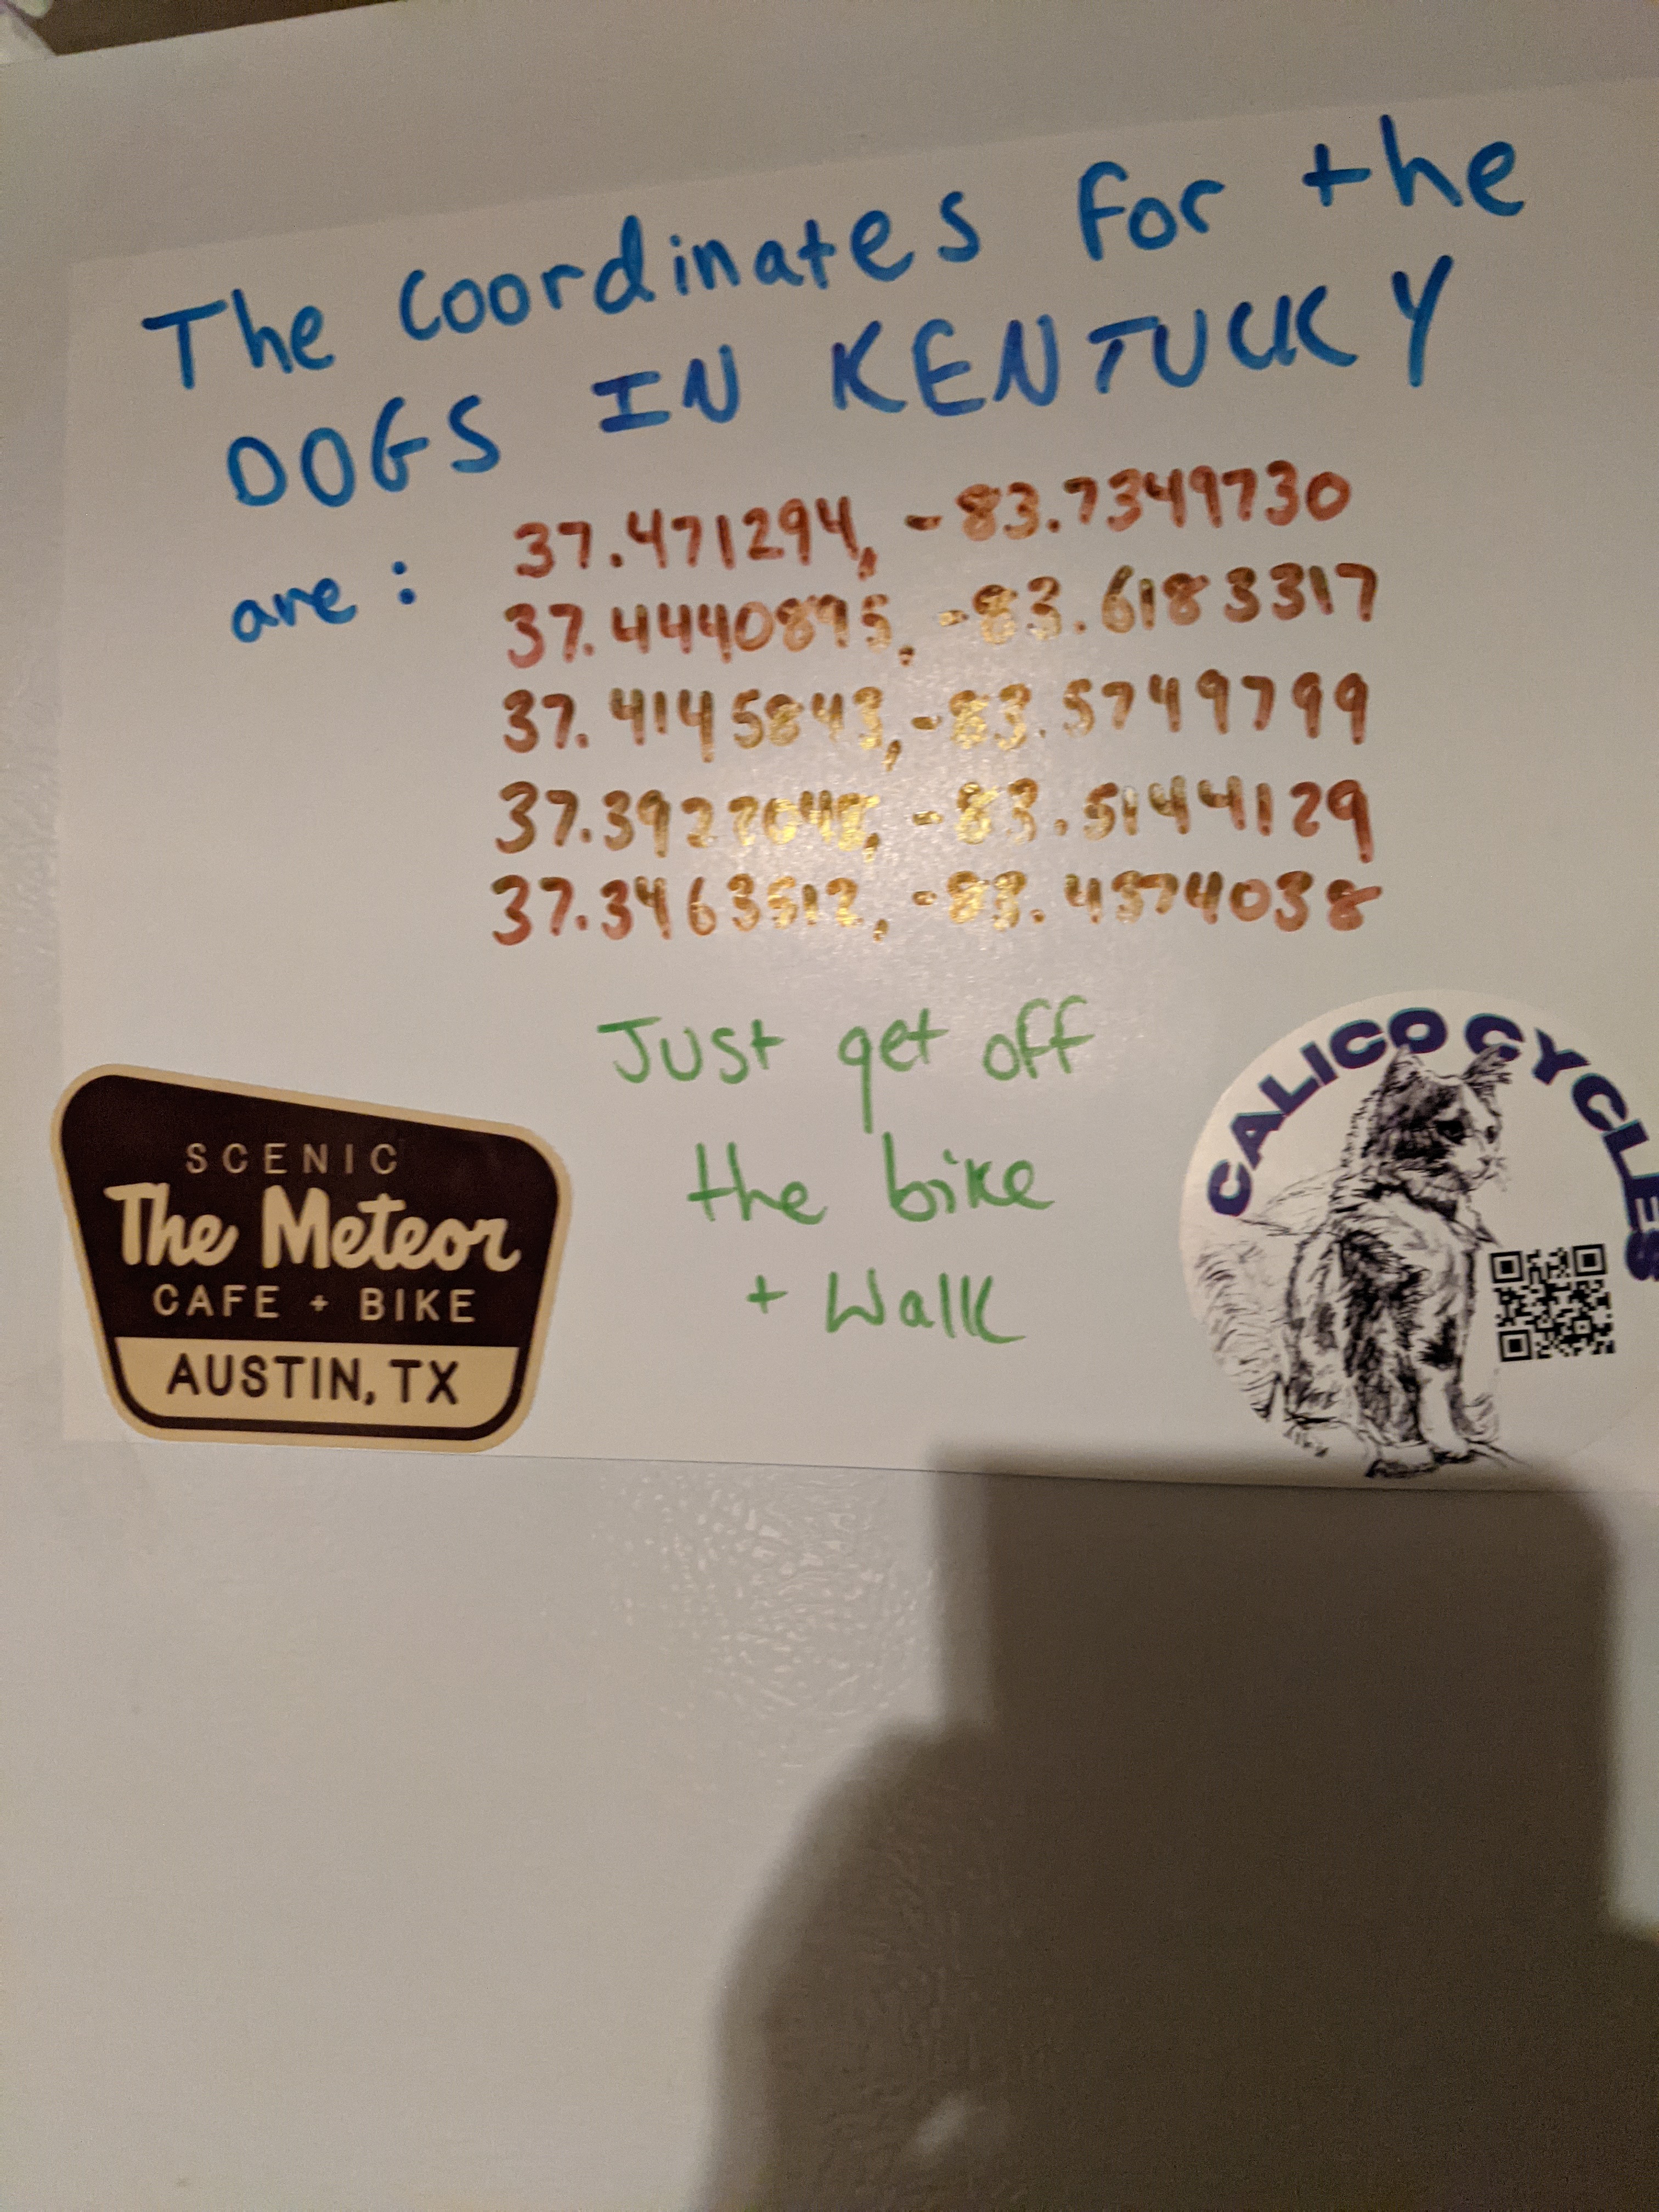 The coordinates for the
DOGS IN KENTUCKY
are:
37.471294, -83.7349730
37.4440895, -83.6183317
37.4145843, -83.5749799
37.3922048, -83.5144129
37.3463512, -83.4374038
Just get off
the bike
+ Walk
SCENIC
The Meteor
CAFE + BIKE
AUSTIN, TX
CALICO CYCLES